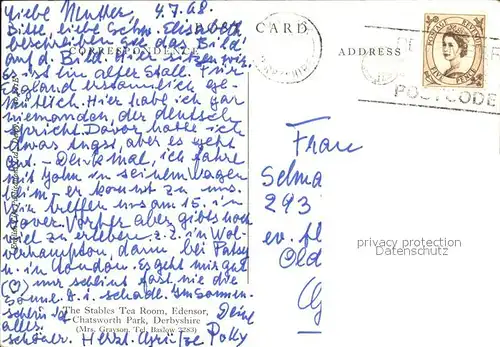 Liebe Mutter, 4.7.68.
Bitte, liebe Schw. Elisabeth
beschreiben Sie das Bild
auf d. Bild. Hier sitzen wir,
es ist ein alter Stall. Für
England erstaunlich ge-
mütlich. Hier habe ich gar
niemanden, der deutsch
spricht. Davor hatte ich
etwas Angst, aber es geht
gut. - Denk mal, ich fahre
mit John in seinem Wagen
heim, - er kommt zu uns.
Wir treffen uns am 15. in
Dover. Vorher aber gibts noch
viel zu erleben z.Z. in Wol-
verhampton, dann bei Patsy
u. in London. Es geht mir gut
(♡) nur scheint fast nie die
Sonne. D. i. schade. Im Sonnen-
schein ist
alles
schöner. Herzl. Grüße Deine Polly
CARD
CORRESPONDENCE
ADDRESS
POSTAGE REVENUE
POSTCODE
Frau
Selma
293
ev. fl
Old
privacy protection
Datenschutz
The Stables Tea Room, Edensor,
Chatsworth Park, Derbyshire
(Mrs. Grayson, Tel. Baslow 2283)